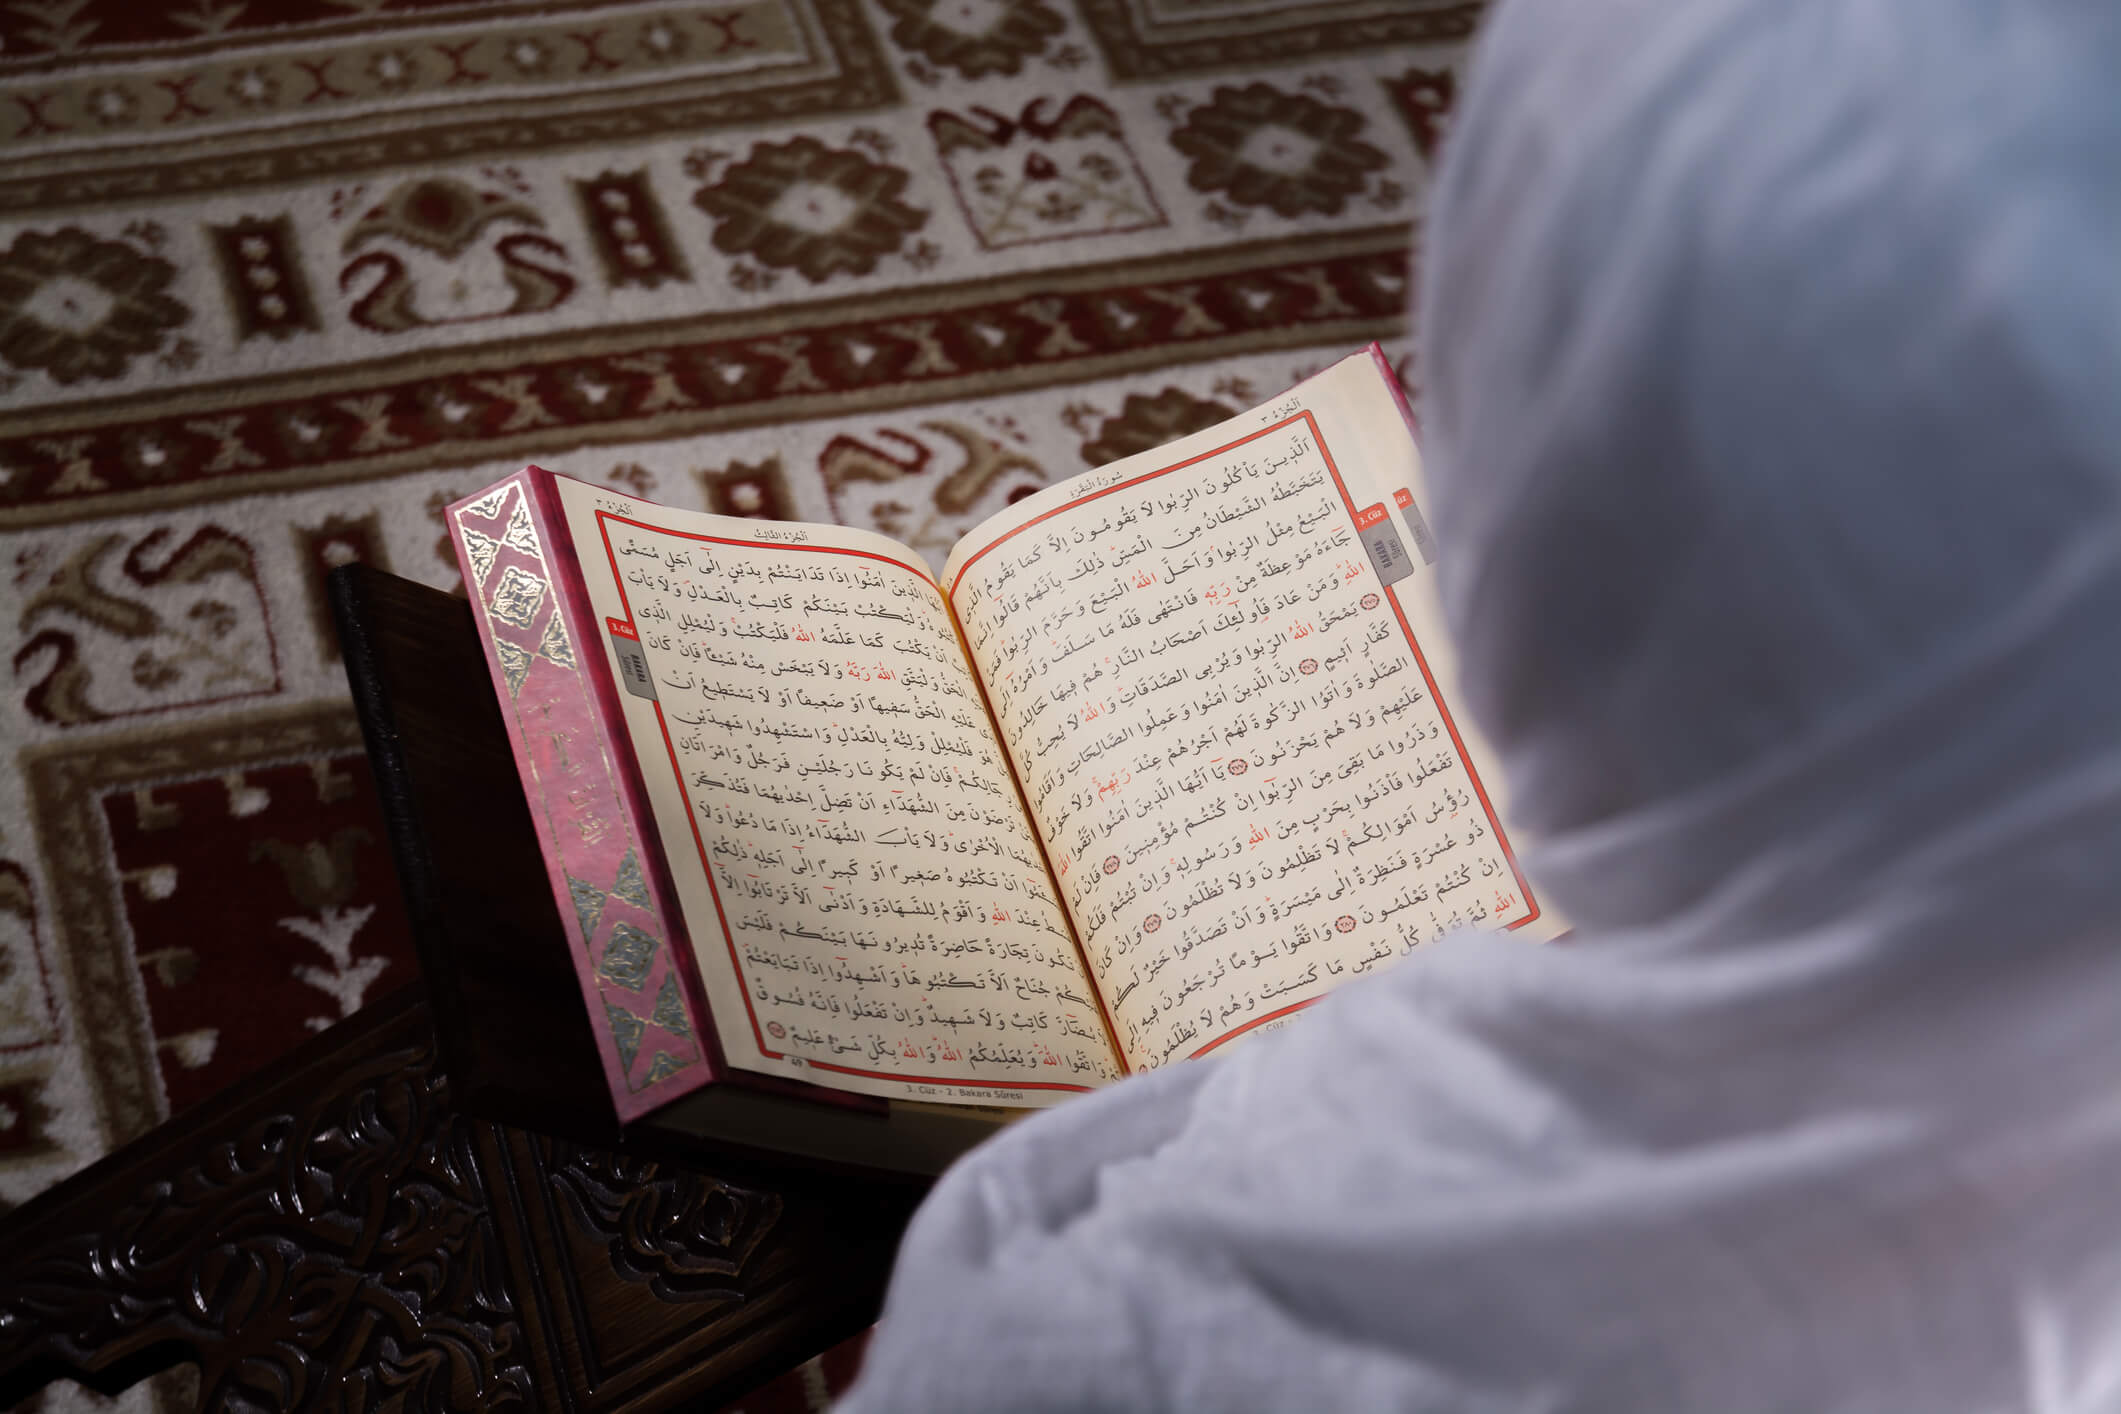 اَلْجُزْءُ ٣
سُورَةُ الْبَقَرَةِ
اَلَّذٖينَ يَاْكُلُونَ الرِّبٰوا لَا يَقُومُونَ اِلَّا كَمَا يَقُومُ الَّذٖى
يَتَخَبَّطُهُ الشَّيْطَانُ مِنَ الْمَسِّ ذٰلِكَ بِاَنَّهُمْ قَالُٓوا اِنَّمَا
الْبَيْعُ مِثْلُ الرِّبٰوا وَاَحَلَّ اللّٰهُ الْبَيْعَ وَحَرَّمَ الرِّبٰوا فَمَنْ
جَٓاءَهُ مَوْعِظَةٌ مِنْ رَبِّهٖ فَانْتَهٰى فَلَهُ مَا سَلَفَ وَاَمْرُهُٓ اِلَى
اللّٰهِ وَمَنْ عَادَ فَاُولٰٓئِكَ اَصْحَابُ النَّارِ هُمْ فٖيهَا خَالِدُونَ
﴿٢٧٥﴾ يَمْحَقُ اللّٰهُ الرِّبٰوا وَيُرْبِى الصَّدَقَاتِ وَاللّٰهُ لَا يُحِبُّ كُلَّ
كَفَّارٍ اَثٖيمٍ ﴿٢٧٦﴾ اِنَّ الَّذٖينَ اٰمَنُوا وَعَمِلُوا الصَّالِحَاتِ وَاَقَامُوا
الصَّلٰوةَ وَاٰتَوُا الزَّكٰوةَ لَهُمْ اَجْرُهُمْ عِنْدَ رَبِّهِمْ وَلَا خَوْفٌ
عَلَيْهِمْ وَلَا هُمْ يَحْزَنُونَ ﴿٢٧٧﴾ يَٓا اَيُّهَا الَّذٖينَ اٰمَنُوا اتَّقُوا اللّٰهَ
وَذَرُوا مَا بَقِىَ مِنَ الرِّبٰٓوا اِنْ كُنْتُمْ مُؤْمِنٖينَ ﴿٢٧٨﴾ فَاِنْ لَمْ
تَفْعَلُوا فَاْذَنُوا بِحَرْبٍ مِنَ اللّٰهِ وَرَسُولِهٖ وَاِنْ تُبْتُمْ فَلَكُمْ
رُؤُسُ اَمْوَالِكُمْ لَا تَظْلِمُونَ وَلَا تُظْلَمُونَ ﴿٢٧٩﴾ وَاِنْ كَانَ
ذُو عُسْرَةٍ فَنَظِرَةٌ اِلٰى مَيْسَرَةٍ وَاَنْ تَصَدَّقُوا خَيْرٌ لَكُمْ
اِنْ كُنْتُمْ تَعْلَمُونَ ﴿٢٨٠﴾ وَاتَّقُوا يَوْمًا تُرْجَعُونَ فٖيهِ اِلَى
اللّٰهِ ثُمَّ تُوَفّٰى كُلُّ نَفْسٍ مَا كَسَبَتْ وَهُمْ لَا يُظْلَمُونَ
3. Cüz
BAKARA
Sûresi
اَلْجُزْءُ الثَّالِثُ
اَلْجُزْءُ ٣
الَّذٖينَ اٰمَنُٓوا اِذَا تَدَايَنْتُمْ بِدَيْنٍ اِلٰٓى اَجَلٍ مُسَمًّى
وَلْيَكْتُبْ بَيْنَكُمْ كَاتِبٌ بِالْعَدْلِ وَلَا يَاْبَ
اَنْ يَكْتُبَ كَمَا عَلَّمَهُ اللّٰهُ فَلْيَكْتُبْ وَلْيُمْلِلِ الَّذٖى
الْحَقُّ وَلْيَتَّقِ اللّٰهَ رَبَّهُ وَلَا يَبْخَسْ مِنْهُ شَيْئًا فَاِنْ كَانَ
عَلَيْهِ الْحَقُّ سَفٖيهًا اَوْ ضَعٖيفًا اَوْ لَا يَسْتَطٖيعُ اَنْ
هُوَ فَلْيُمْلِلْ وَلِيُّهُ بِالْعَدْلِ وَاسْتَشْهِدُوا شَهٖيدَيْنِ
فَاِنْ لَمْ يَكُونَا رَجُلَيْنِ فَرَجُلٌ وَامْرَاَتَانِ
تَرْضَوْنَ مِنَ الشُّهَدَٓاءِ اَنْ تَضِلَّ اِحْدٰيهُمَا فَتُذَكِّرَ
الْاُخْرٰى وَلَا يَاْبَ الشُّهَدَٓاءُ اِذَا مَا دُعُوا وَلَا
اَنْ تَكْتُبُوهُ صَغٖيرًا اَوْ كَبٖيرًا اِلٰٓى اَجَلِهٖ ذٰلِكُمْ
عِنْدَ اللّٰهِ وَاَقْوَمُ لِلشَّهَادَةِ وَاَدْنٰٓى اَلَّا تَرْتَابُٓوا اِلَّٓا
تَكُونَ تِجَارَةً حَاضِرَةً تُدٖيرُونَهَا بَيْنَكُمْ فَلَيْسَ
جُنَاحٌ اَلَّا تَكْتُبُوهَا وَاَشْهِدُٓوا اِذَا تَبَايَعْتُمْ
يُضَٓارَّ كَاتِبٌ وَلَا شَهٖيدٌ وَاِنْ تَفْعَلُوا فَاِنَّهُ فُسُوقٌ
وَاتَّقُوا اللّٰهَ وَيُعَلِّمُكُمُ اللّٰهُ وَاللّٰهُ بِكُلِّ شَىْءٍ عَلٖيمٌ ﴿٢٨٢﴾
3. Cüz
BAKARA
Sûresi
3. Cüz - 2. Bakara Sûresi